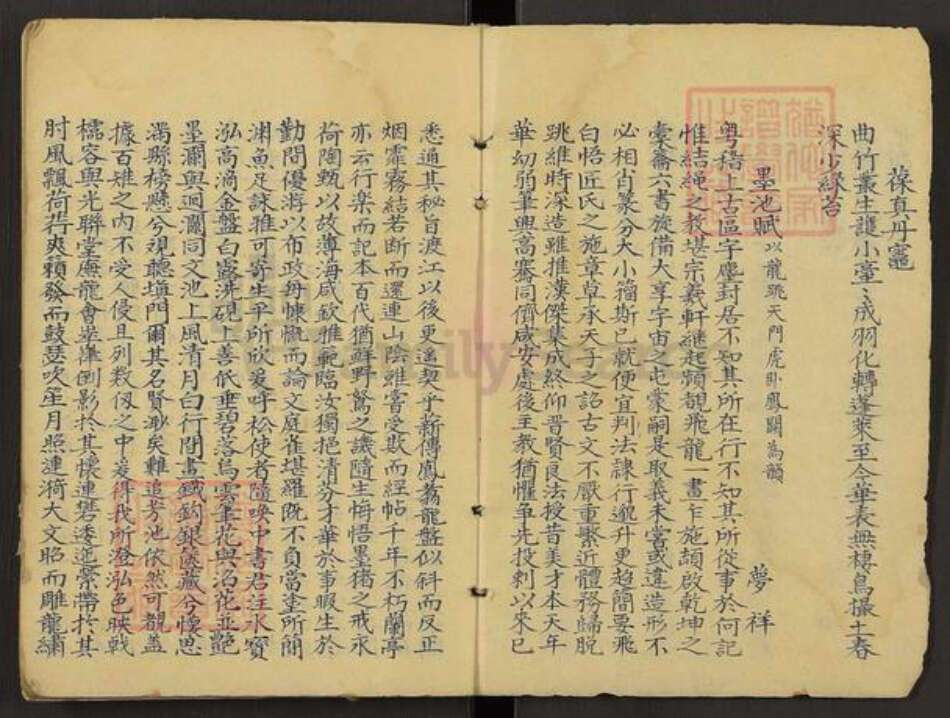 葆真丹竈
曲竹叢生護小堂〻成羽化轉蓬萊至今華表無棲鳥撮土春
深少綠苔
墨池賦以龍跳天門虎卧鳳闕為韻
夢祥
粤稽上古區宇塵封居不知其所在行不知其所從事於何記
惟結繩之教堪宗羲軒繼起頻覩飛龍一畫乍施頡啟乾坤之
橐籥六書旋備大享字宙之屯蒙嗣是取義未當或違造形不
必相肖篆分大小籀斯已就便宜判法隷行邈升更趨簡要飛
白悟匠氏之施章草承天子之詔古文不厭重繫近體務歸脱
跳維時深造雖推漢傑集成終仰晋賢良法授昔美才本天年
華幼弱筆興高騫同儕咸安處後王教猶懼争先投刺以來已
悉通其秘旨渡江以後更遙契乎新傳鳳翥龍盤似斜而反正
烟霏霧結若断而還連山陰雖嘗受欺而經帖千年不朽蘭亭
亦云行楽而記本百代猶鮮野鶩之譏隨生悔悟墨猪之戒永
荷陶甄以故薄海咸欽雅範臨汝獨挹清分才華於事暇生於
勤問優游以布政毎慷慨而論文庭雀堪羅既不負當塗所簡
渊魚足詠雅可寄生平所欣爰呼松使者隨喚中書君注水寶
泓高滴金盤白露洗硯上善低垂碧落烏雲筆花與浴花並艶
墨瀾與迴瀾同文池上風清月白行間畫鐡鈎銀藏兮懷思
濁縣榜懸兮視聽塩門爾其名賢渺矣難追芳池依然可覩蓋
據百雉之内不受人侵且列数仭之中爰得我所澄泓色映戟
櫺容與光聯堂廡龍會崒嵂倒影於其懷連礬逶迤縈帶於其
肘風飄荷芰爽籟發而鼓瑟吹笙月照漣漪大文昭而雕龍繡